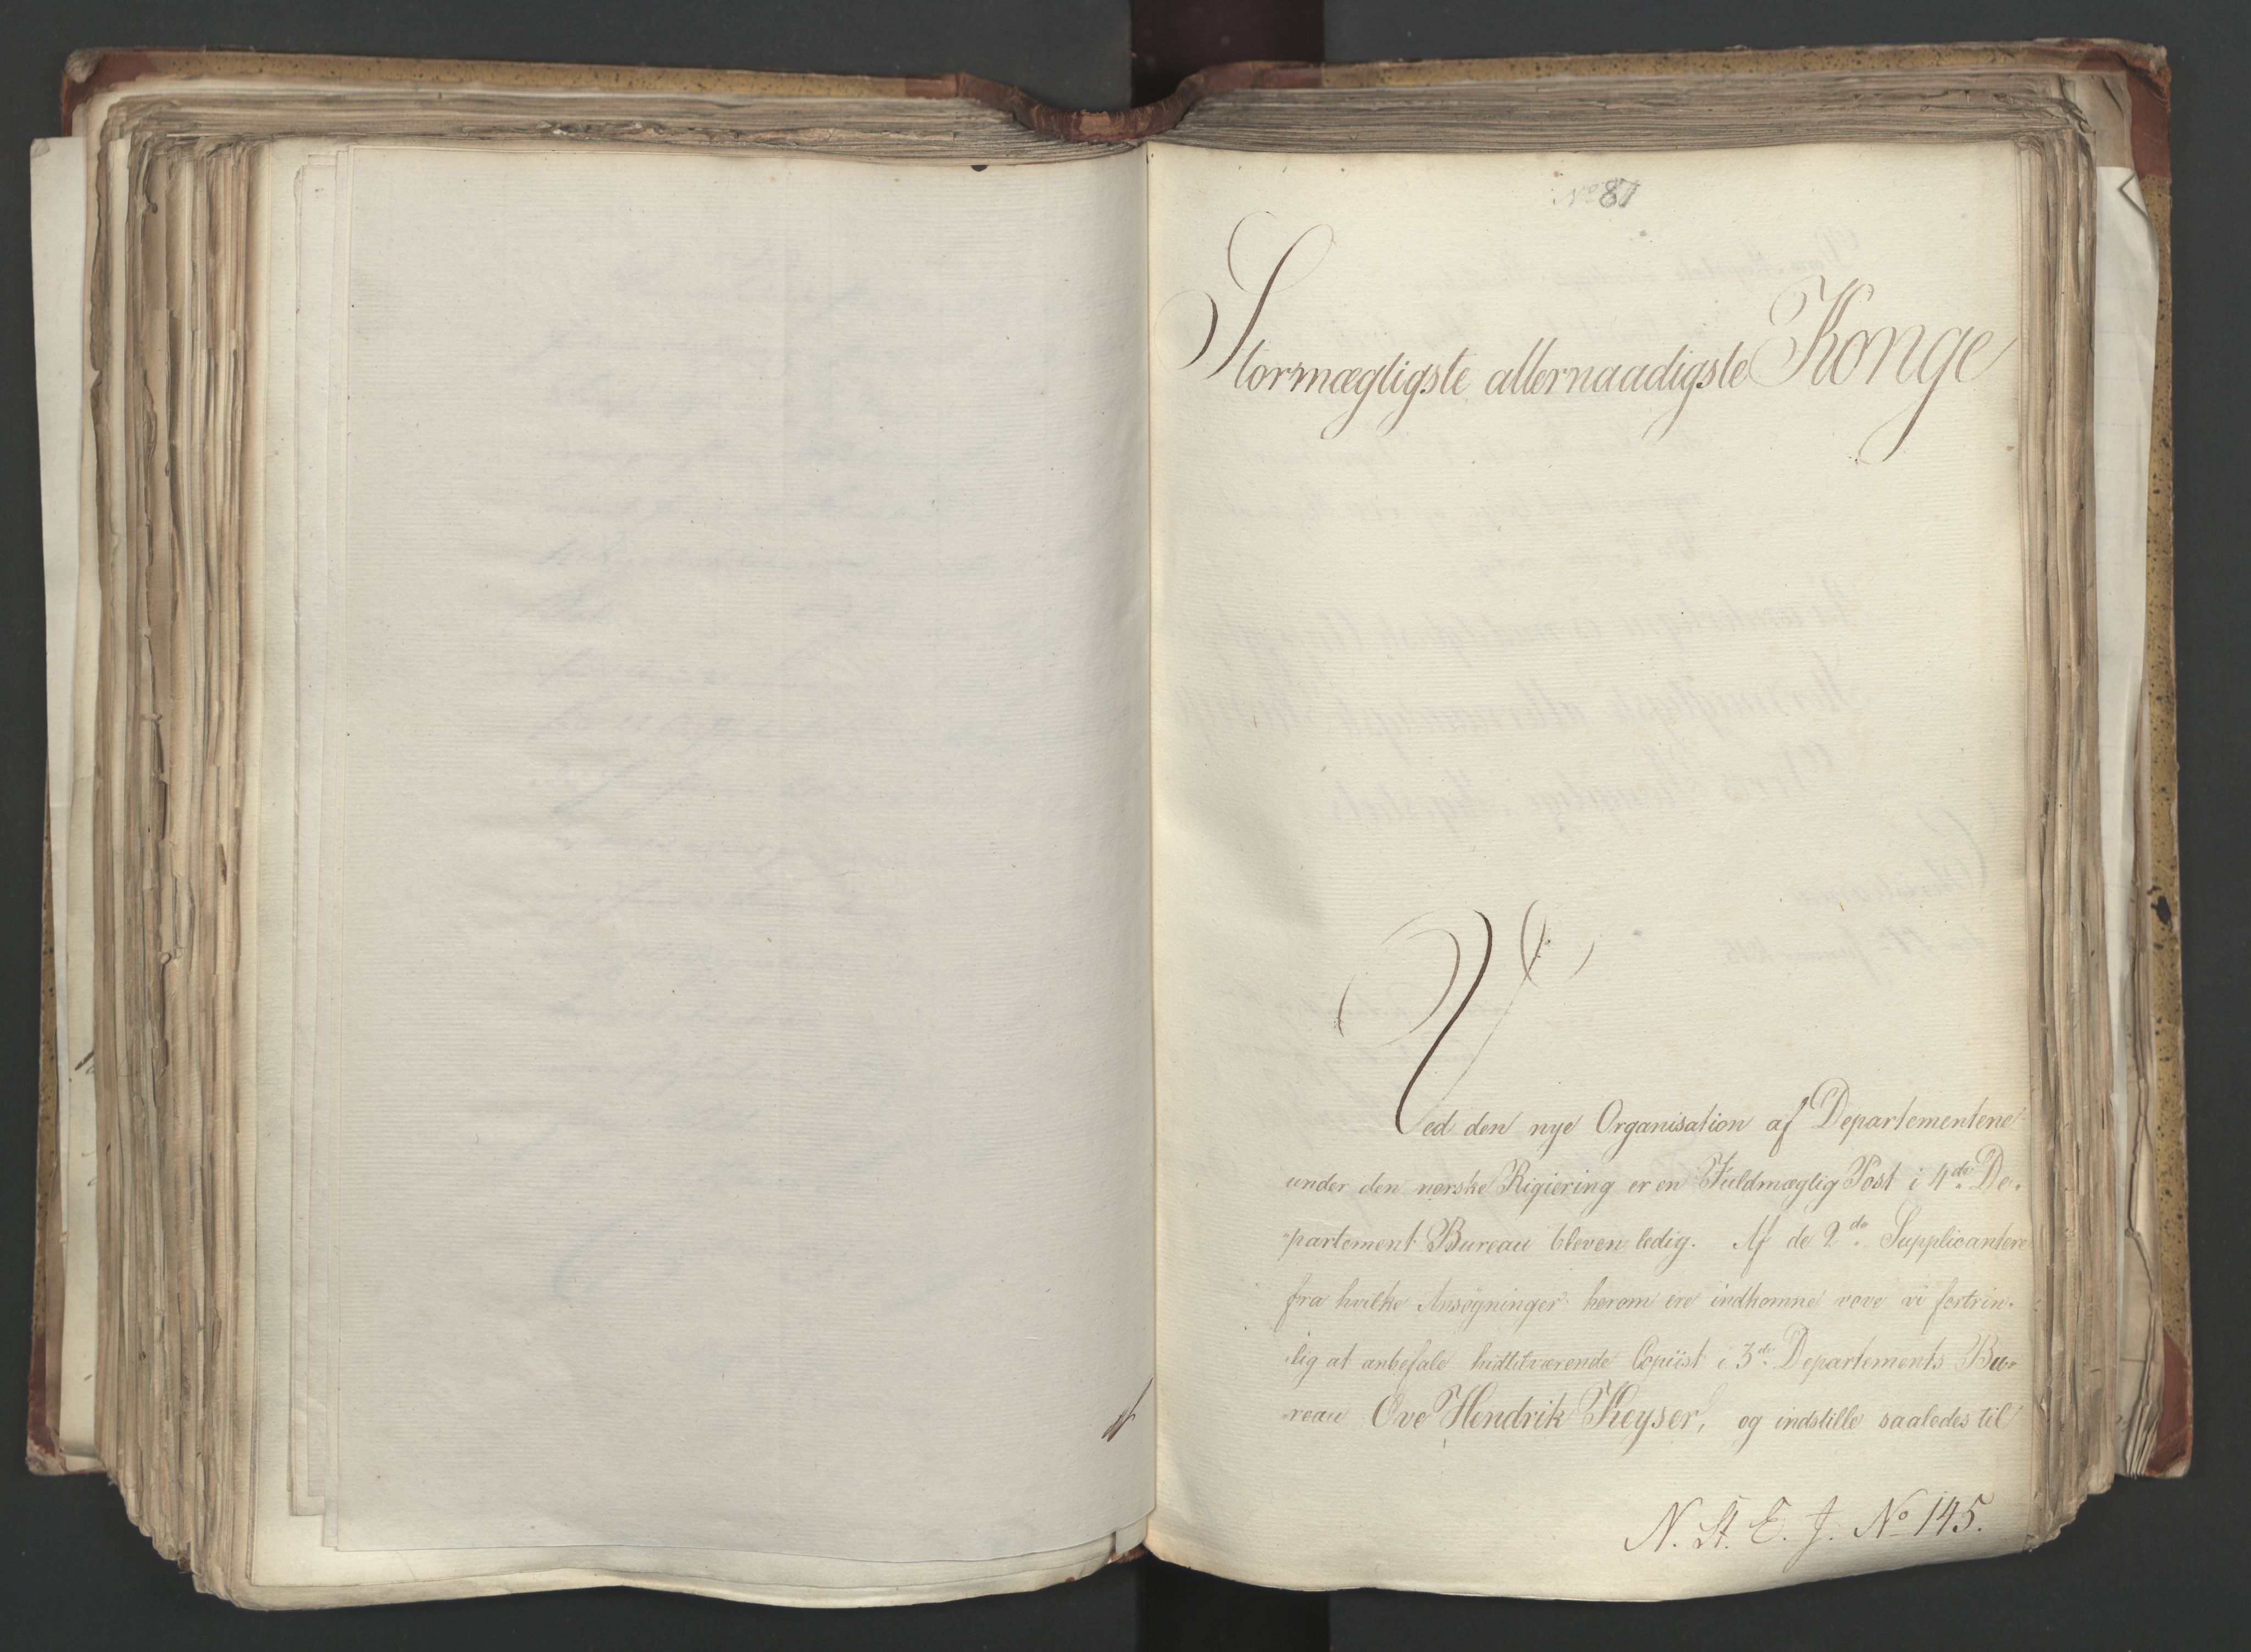 No 87
Stormægtigste allernaadigste Konge
Ved den nye Organisation af Departementene
under den norske Rigiering er en Fuldmægtig Post i 4de De-
"partement Bureau bleven ledig. Af de 2de Supplicantere
fra hvilke Ansøgninger herom ere indkomne vove vi fortrin-
-lig at anbefale hidtilværende Copiist i 3de Departements Bu-
-reau Ove Hendrik Keyser, og indstille saaledes til
N. St. E. J. No 145.